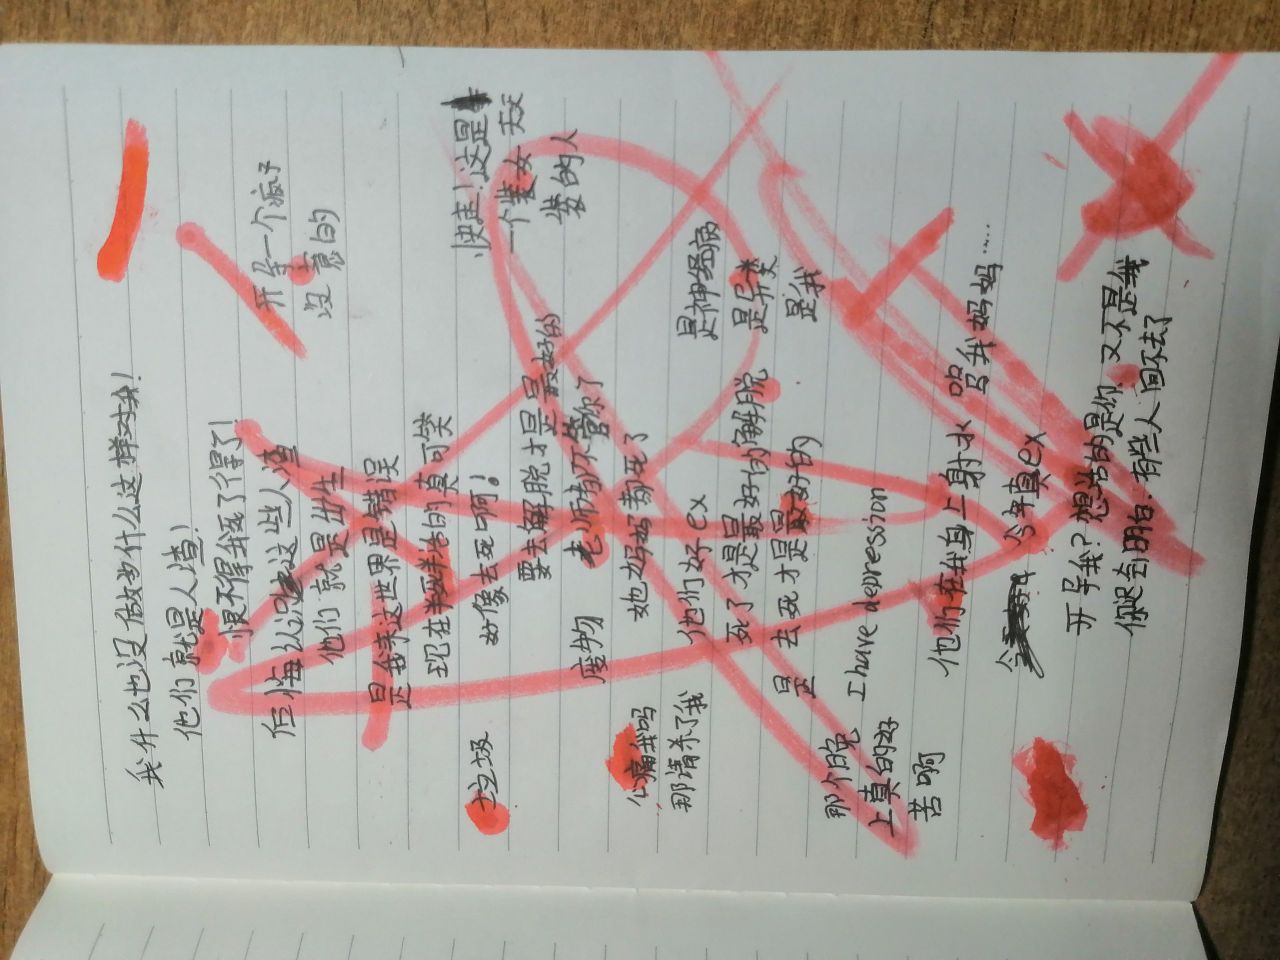 我什么也没做为什么这样对我!
他们就是人渣!
恨不得我死了得了!
后悔认识这些人渣
他们就是出生
是我来这世界是错误
现在半死半活的真可笑
好像去死啊!
要去解脱才是最好的
废物 老师都不管你了
她妈妈都死了
他们好ex
死了才是最好的解脱
是 去死才是最好的
I have depression
他们在我身上射水 骂我妈妈……
今年真ex
开导我?想啥的是你 又不是我
你迟 明白.有些人回不去了
开导一个疯子
没意的
快走!这是
一个装女天天
装的人
是神经病
是异类
是我
垃圾
心痛我吗
那请杀了我
那个晚
上真的好
苦啊